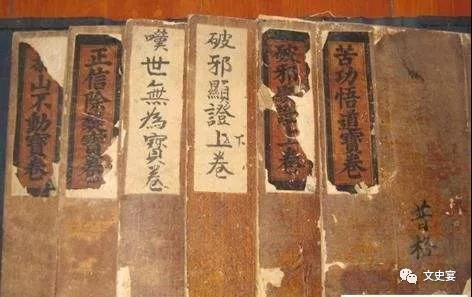 普
苦功悟道寶卷
破邪 卷
破邪顯證上卷
下
嘆世無為寶卷
正信除 寶卷
山不動寶卷
文史宴